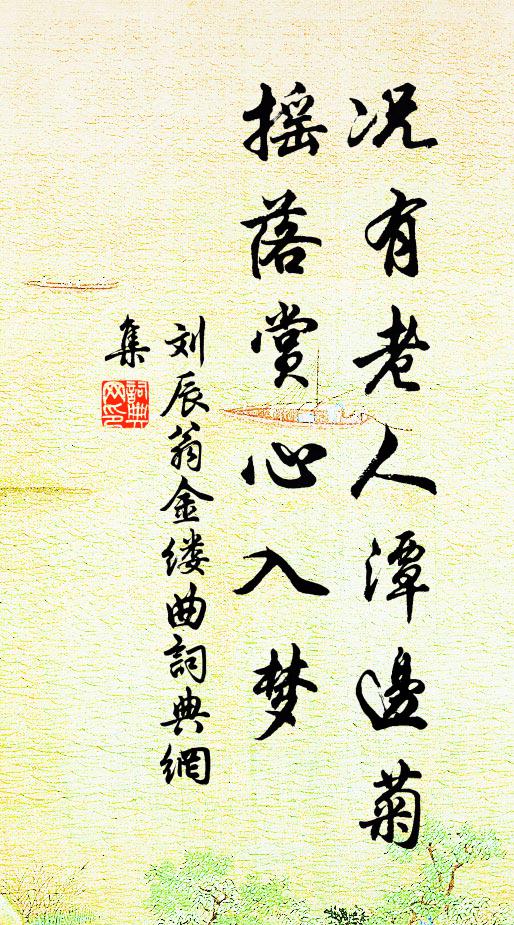 况有老人潭邊菊
摇落赏心入梦
刘辰翁金缕曲詞典網
集
詞典
网印